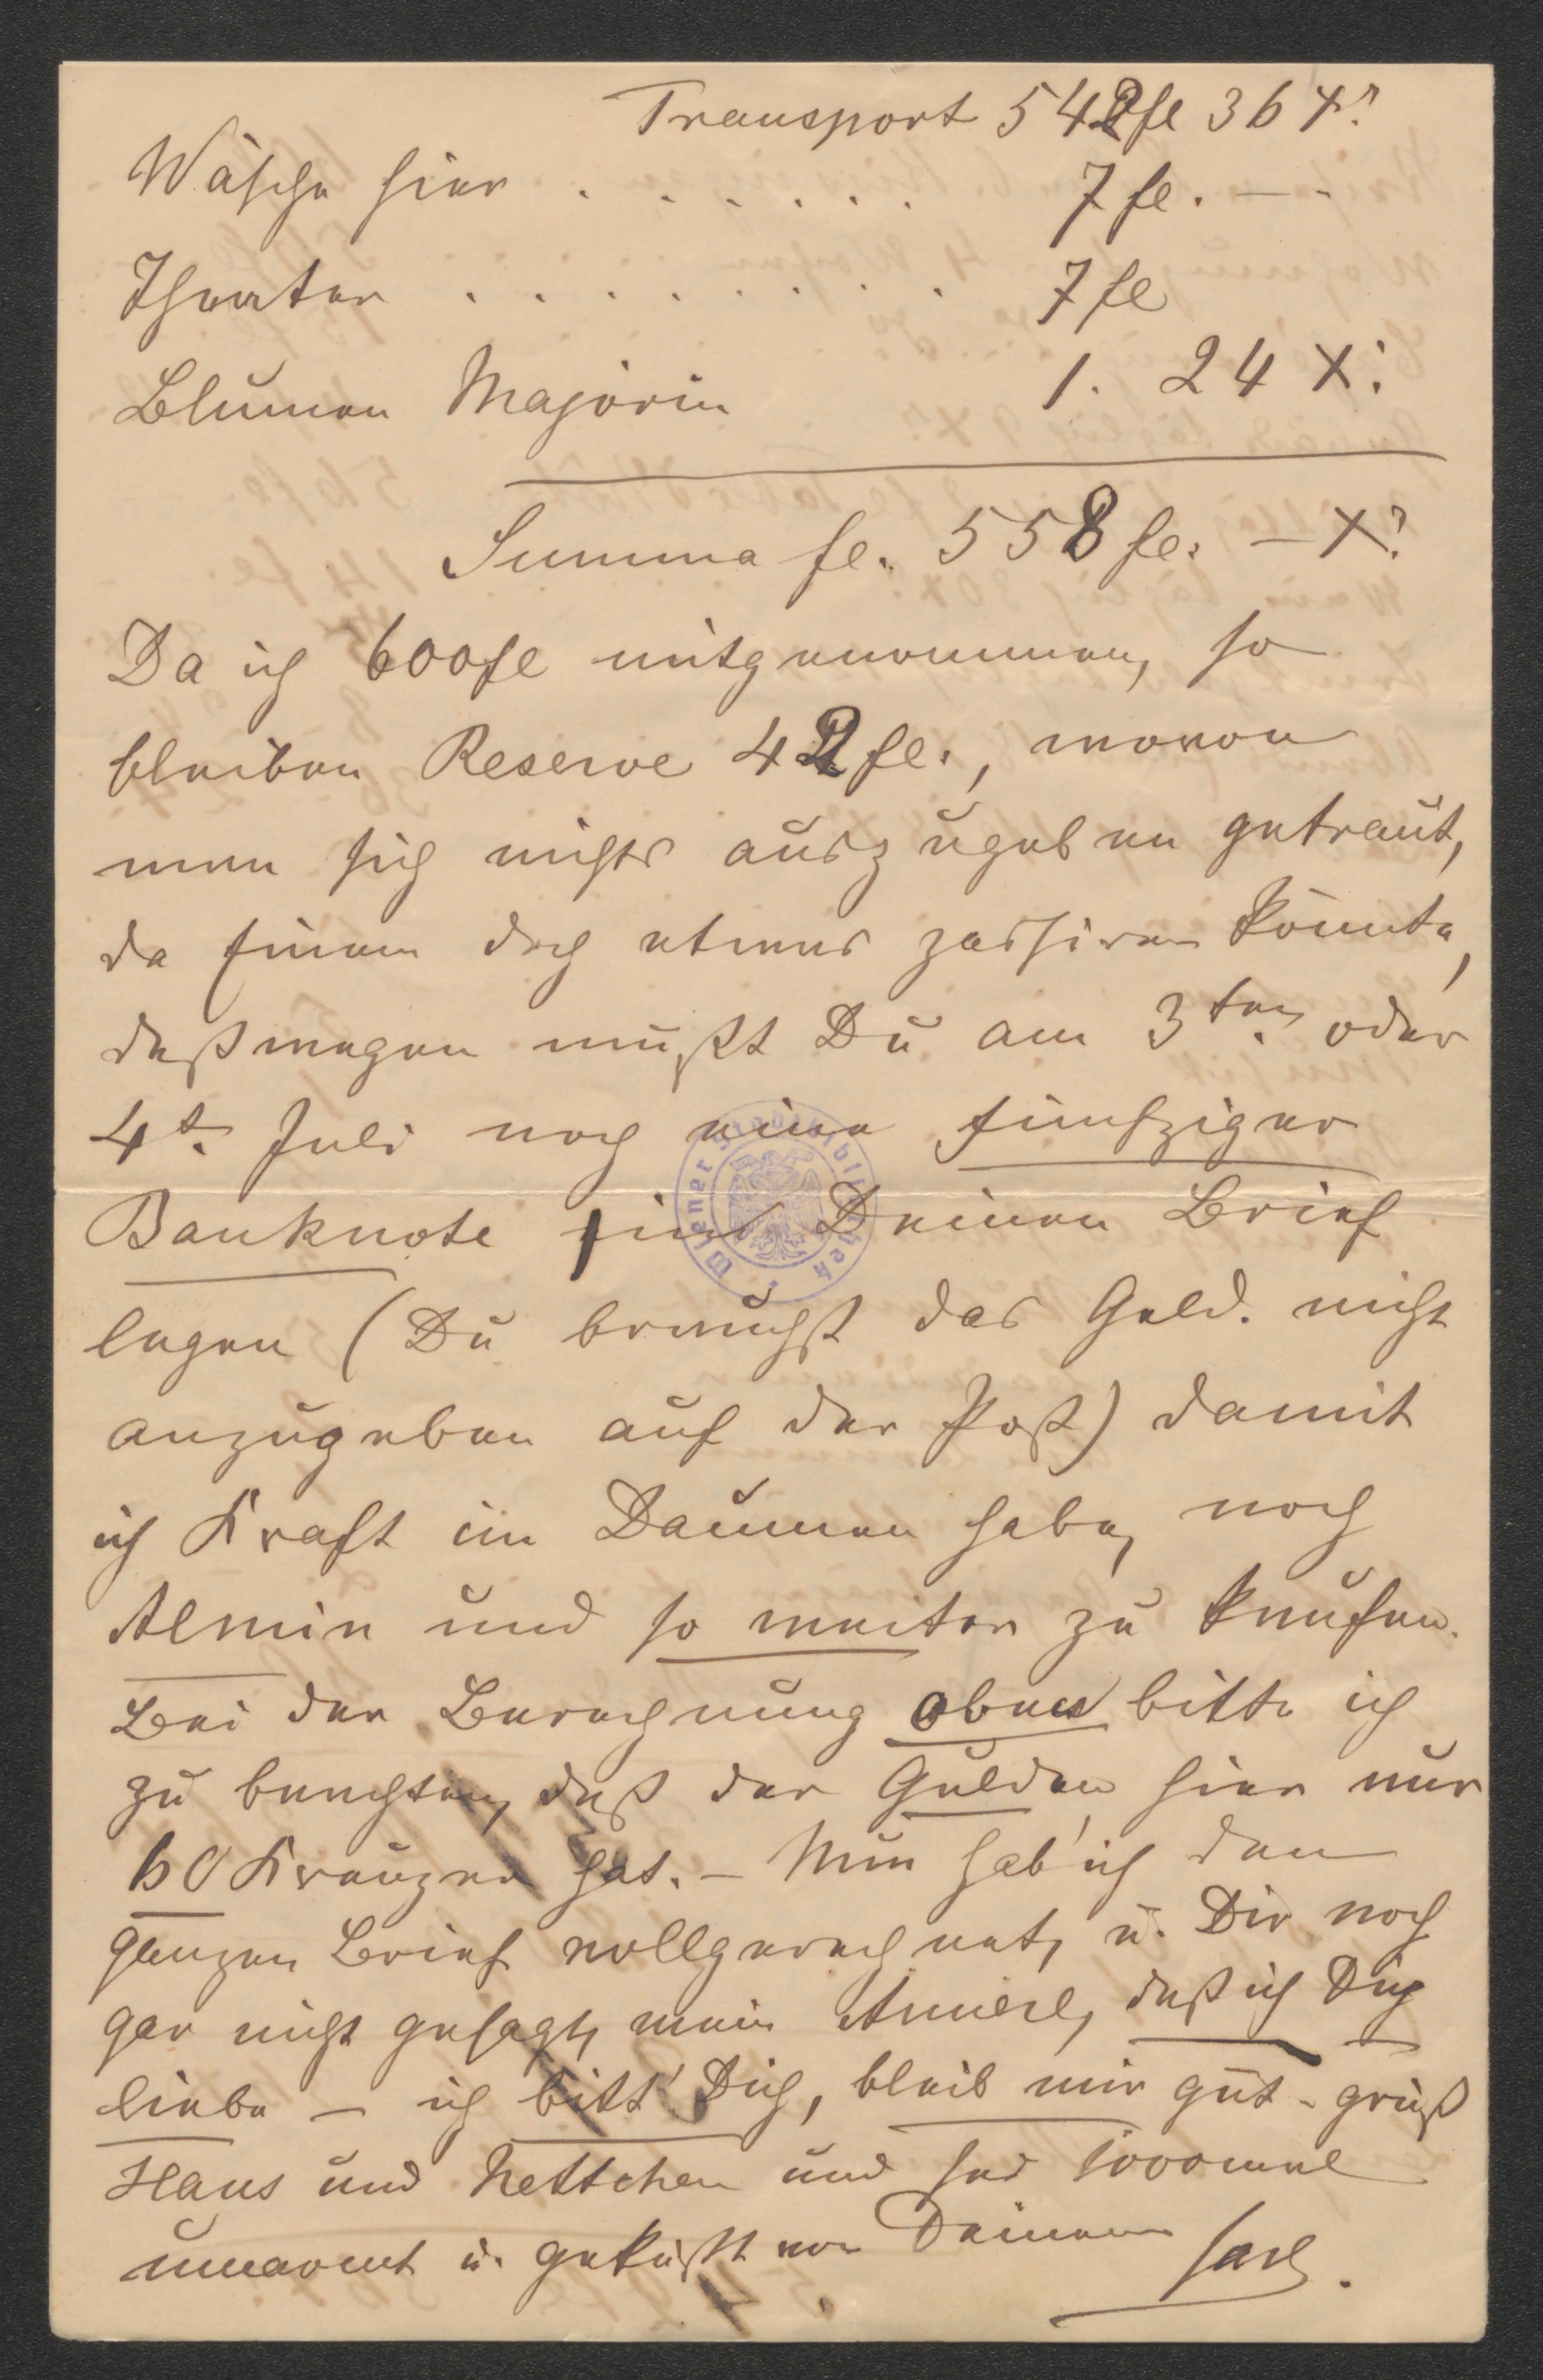 Transport 542 fl 36 x.
Wäsche hier . . . . . . 7 fl. — -
Theater . . . . . . . . 7 fl
Blumen Majorin 1. 24 x.
Summa fl. 558 fl. — x.
Da ich 600 fl mitgenommen, so
bleiben Reserve 42 fl., wovon
man sich nichts auszugeben getraut,
da Einem doch etwas passiren könnte,
deßwegen mußt Du am 3ten oder
4t. Juli noch eine fünfziger
Banknote in Deinen Brief
legen (Du brauchst das Geld. nicht
anzugeben auf der Post) damit
ich Kraft im Daumen habe, noch
und so weiter zu kaufen.
Bei der Berechnung oben bitte ich
zu beachten, daß der Gulden hier nur
60 Kreuzer hat. — Nun hab' ich den
ganzen Brief vollgerechnet, u. Dir noch
gar nicht gesagt, mein Annerl, daß ich Dich
liebe — ich bitt' Dich, bleib mir gut - grüß
Hans und Nettchen und sei 1000mal
umarmt u. geküßt von Deinem
Carl.
Wiener Stadtbibliothek